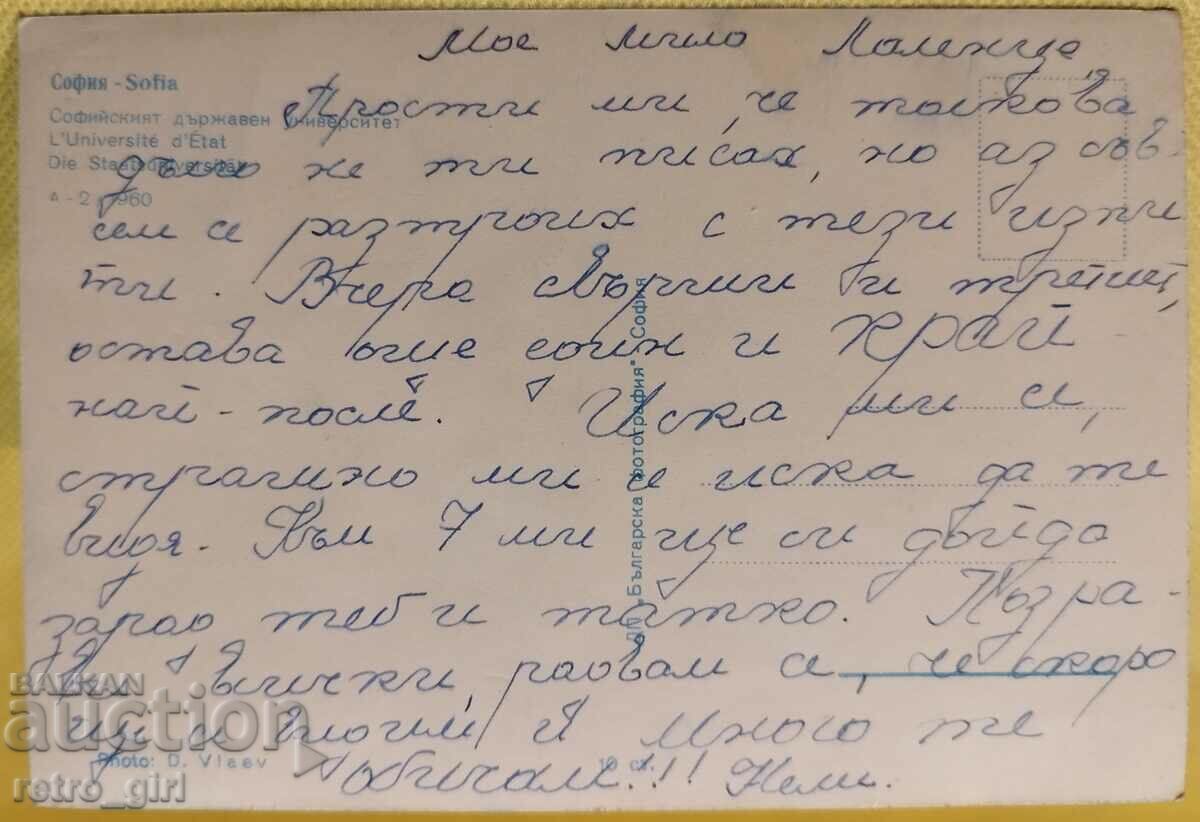 Мое мило Маленце
София - Sofia
Софийският държавен университет
L'Université d'État
Die Staatsuniversität
A - 2 1960
Прости ми, че толкова
дълго не ти писах, но аз съв-
сем се разтроих с тези изпи
ти. Вчера свърших и третия,
остава още един и край
най-после. Иска ми се,
страшно ми се иска да те
видя. Към 7 ми ще си дойда
заради теб и татко. Поздра-
ви всички, радвам се, че скоро
ще и много те
обичам!!! Нели.
ДП „Българска фотография" София
Photo: D. Vlaev
10 ст.
BALKAN
auction
retro_girl